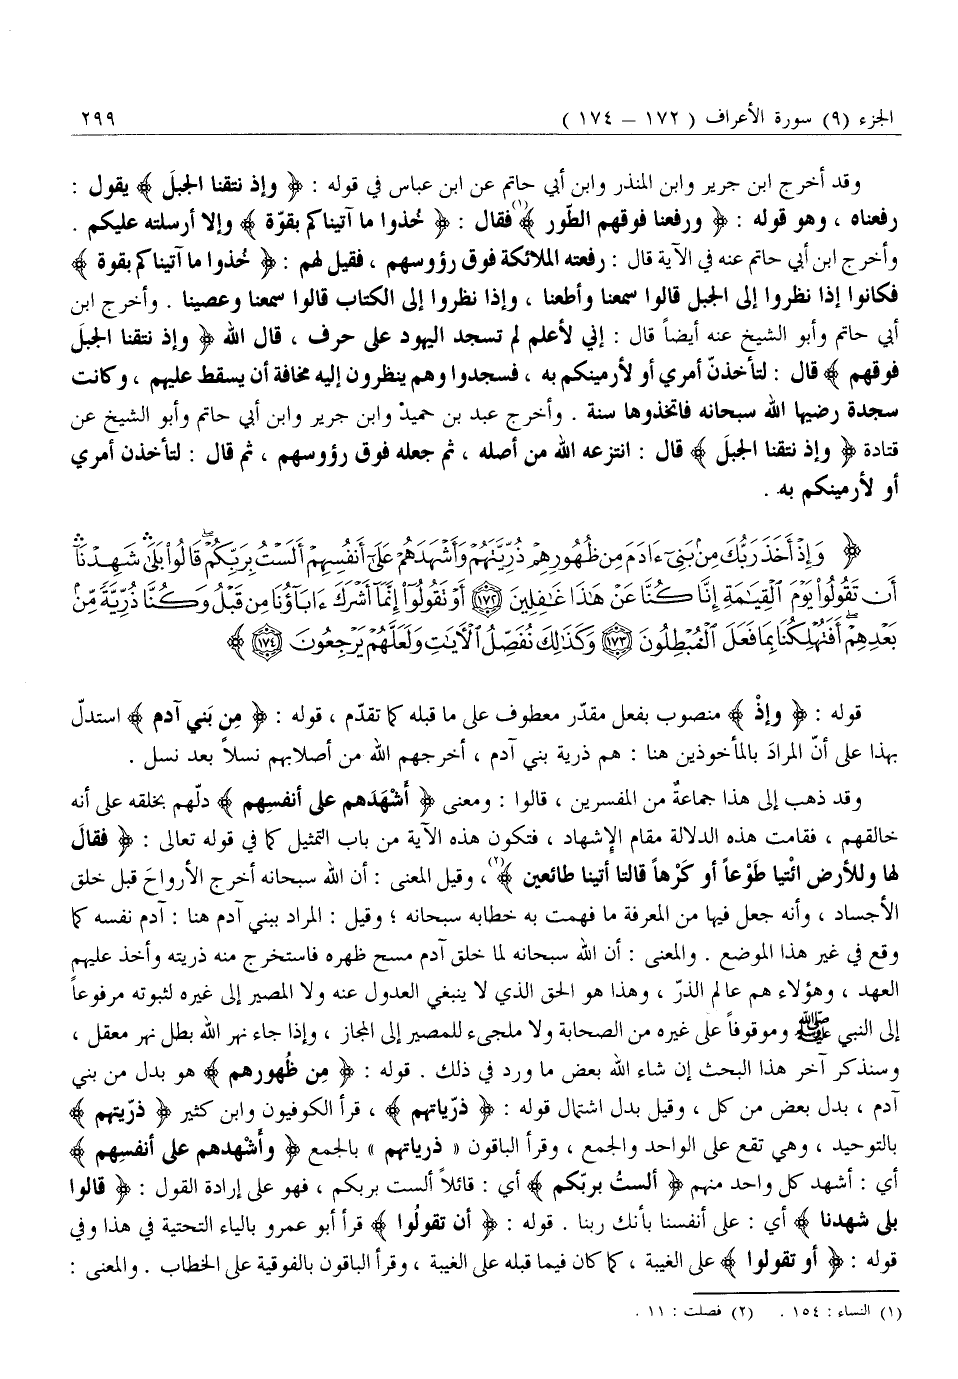 الجزء (٩) سورة الأعراف ( ١٧٢ – ١٧٤ ) ٢٩٩
وقد أخرج ابن جرير وابن المنذر وابن أبي حاتم عن ابن عباس في قوله : ﴿ وإذ نتقنا الجبلَ ﴾ يقول :
رفعناه ، وهو قوله : ﴿ ورفعنا فوقهم الطّور ﴾(١) فقال : ﴿ خُذوا ما آتيناكم بقوّة ﴾ وإلا أرسلته عليكم .
وأخرج ابن أبي حاتم عنه في الآية قال : رفعته الملائكة فوق رؤوسهم ، فقيل لهم : ﴿ خُذوا ما آتيناكم بقوة ﴾
فكانوا إذا نظروا إلى الجبل قالوا سمعنا وأطعنا ، وإذا نظروا إلى الكتاب قالوا سمعنا وعصينا . وأخرج ابن
أبي حاتم وأبو الشيخ عنه أيضاً قال : إني لأعلم لم تسجد اليهود على حرف ، قال الله ﴿ وإذ نتقنا الجبلَ
فوقهم ﴾ قال : لتأخذنّ أمري أو لأرمينكم به ، فسجدوا وهم ينظرون إليه مخافة أن يسقط عليهم ، وكانت
سجدة رضيها الله سبحانه فاتخذوها سنة . وأخرج عبد بن حميد وابن جرير وابن أبي حاتم وأبو الشيخ عن
قتادة ﴿ وإذ نتقنا الجبلَ ﴾ قال : انتزعه الله من أصله ، ثم جعله فوق رؤوسهم ، ثم قال : لتأخذن أمري
أو لأرمينكم به .
﴿ وَإِذْ أَخَذَ رَبُّكَ مِنۢ بَنِىٓ ءَادَمَ مِن ظُهُورِهِمْ ذُرِّيَّتَهُمْ وَأَشْهَدَهُمْ عَلَىٰٓ أَنفُسِهِمْ أَلَسْتُ بِرَبِّكُمْ ۖ قَالُوا۟ بَلَىٰ ۛ شَهِدْنَآ ۛ
أَن تَقُولُوا۟ يَوْمَ ٱلْقِيَـٰمَةِ إِنَّا كُنَّا عَنْ هَـٰذَا غَـٰفِلِينَ ١٧٢ أَوْ تَقُولُوٓا۟ إِنَّمَآ أَشْرَكَ ءَابَآؤُنَا مِن قَبْلُ وَكُنَّا ذُرِّيَّةً مِّنۢ
بَعْدِهِمْ ۖ أَفَتُهْلِكُنَا بِمَا فَعَلَ ٱلْمُبْطِلُونَ ١٧٣ وَكَذَٰلِكَ نُفَصِّلُ ٱلْـَٔايَـٰتِ وَلَعَلَّهُمْ يَرْجِعُونَ ١٧٤ ﴾
قوله : ﴿ وإذْ ﴾ منصوب بفعل مقدّر معطوف على ما قبله كما تقدّم ، قوله : ﴿ مِن بَني آدم ﴾ استدلّ
بهذا على أنّ المرادَ بالمأخوذين هنا : هم ذرية بني آدم ، أخرجهم الله من أصلابهم نسلاً بعد نسل .
وقد ذهب إلى هذا جماعةٌ من المفسرين ، قالوا : ومعنى ﴿ أَشْهَدَهم على أنفسِهم ﴾ دلّهم بخلقه على أنه
خالقهم ، فقامت هذه الدلالة مقام الإِشهاد ، فتكون هذه الآية من باب التمثيل كما في قوله تعالى : ﴿ فقالَ
لها وللأرض ائْتيا طَوْعاً أو كَرْهاً قالتا أتينا طائعين ﴾(٢)، وقيل المعنى : أن الله سبحانه أخرج الأرواحَ قبل خلق
الأجساد ، وأنه جعل فيها من المعرفة ما فهمت به خطابه سبحانه ؛ وقيل : المراد ببني آدم هنا : آدم نفسه كما
وقع في غير هذا الموضع . والمعنى : أن الله سبحانه لما خلق آدم مسح ظهره فاستخرج منه ذريته وأخذ عليهم
العهد ، وهؤلاء هم عالم الذرّ ، وهذا هو الحق الذي لا ينبغي العدول عنه ولا المصير إلى غيره لثبوته مرفوعاً
إلى النبي ﷺ وموقوفاً على غيره من الصحابة ولا ملجىء للمصير إلى المجاز ، وإذا جاء نهر الله بطل نهر معقل ،
وسنذكر آخر هذا البحث إن شاء الله بعض ما ورد في ذلك . قوله : ﴿ مِن ظُهورهم ﴾ هو بدل من بني
آدم ، بدل بعض من كل ، وقيل بدل اشتمال قوله : ﴿ ذرّياتهم ﴾ ، قرأ الكوفيون وابن كثير ﴿ ذرّيتهم ﴾
بالتوحيد ، وهي تقع على الواحد والجمع ، وقرأ الباقون « ذرياتهم » بالجمع ﴿ وأَشْهدهم على أنفسِهم ﴾
أي : أشهد كل واحد منهم ﴿ ألستُ بربّكم ﴾ أي : قائلاً ألست بربكم ، فهو على إرادة القول : ﴿ قالوا
بلى شهدنا ﴾ أي : على أنفسنا بأنك ربنا . قوله : ﴿ أن تقولُوا ﴾ قرأ أبو عمرو بالياء التحتية في هذا وفي
قوله : ﴿ أو تقولوا ﴾ على الغيبة ، كما كان فيما قبله على الغيبة ، وقرأ الباقون بالفوقية على الخطاب . والمعنى :
(١) النساء : ١٥٤ . (٢) فصلت : ١١ .